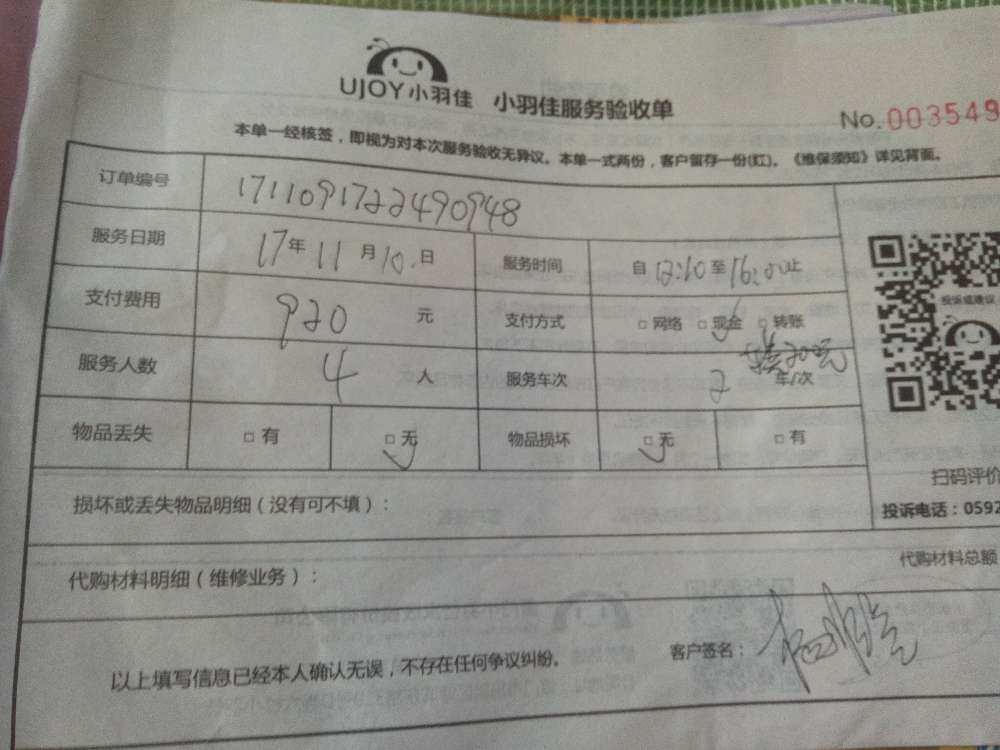 UJOY小羽佳 小羽佳服务验收单
No.003549
本单一经核签，即视为对本次服务验收无异议。本单一式两份，客户留存一份(红)。《维保须知》详见背面。
订单编号 1711091722490948
服务日期 17年11月10日 服务时间 自12:10至16:00止
支付费用 920元 支付方式 □网络 □现金 □转账
服务人数 4人 服务车次 2车/次
物品丢失 □有 □无 物品损坏 □无 □有
投诉或建议
扫码评价
损坏或丢失物品明细（没有可不填）：
投诉电话：0592
代购材料总额
代购材料明细（维修业务）：
以上填写信息已经本人确认无误，不存在任何争议纠纷。 客户签名：